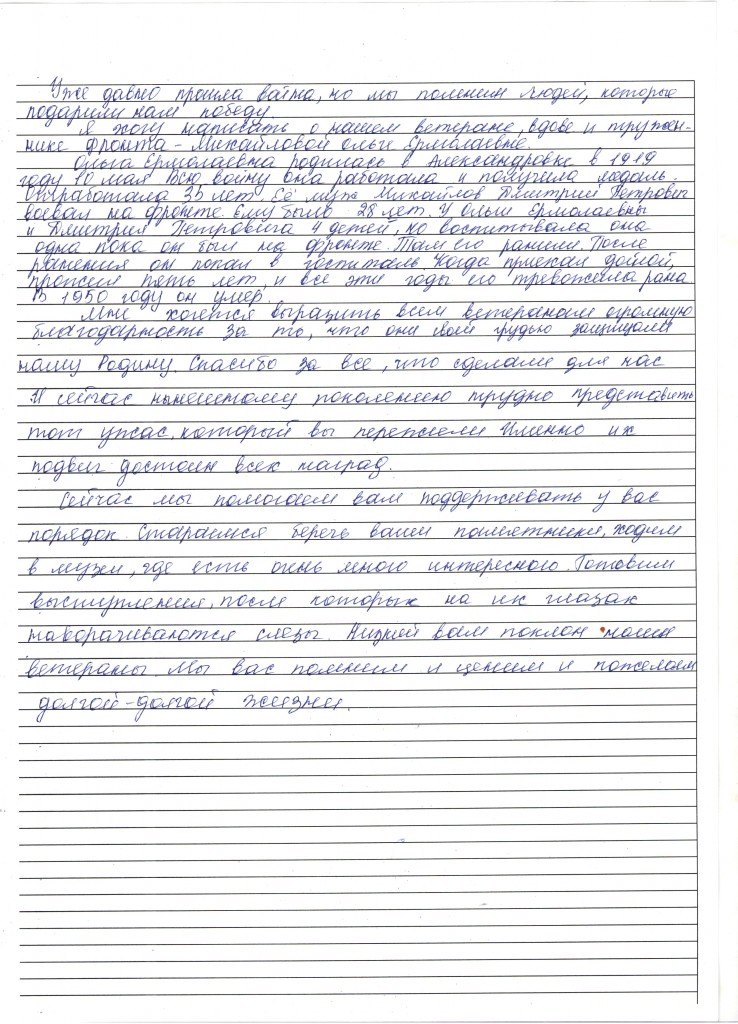 Уже давно прошла война, но мы помним людей, которые
подарили нам победу.
Я хочу написать о нашем ветеране, вдове и тружен-
нике фронта - Михайловой Ольге Ермолаевне.
Ольга Ермолаевна родилась в Александровке в 1919
году 10 мая. Всю войну она работала и получила медаль.
Отработала 35 лет. Её муж Михайлов Дмитрий Петрович
воевал на фронте. Ему было 28 лет. У Ольги Ермолаевны
и Дмитрия Петровича 4 детей, но воспитывала она
одна пока он был на фронте. Там его ранили. После
ранения он попал в госпиталь. Когда приехал домой,
прожил пять лет, и все эти годы его тревожила рана.
В 1950 году он умер.
Мне хочется выразить всем ветеранам огромную
благодарность за то, что они своей грудью защищали
нашу Родину. Спасибо за все, что сделали для нас
И сейчас нынешнему поколению трудно представить
тот ужас, который вы пережили Именно их
подвиг достоин всех наград.
Сейчас мы помогаем вам поддерживать у вас
порядок. Стараемся беречь ваши памятники, ходим
в музеи, где есть очень много интересного. Готовим
выступления, после которых на их глазах
наворачиваются слезы. Низкий вам поклон наши
ветераны. Мы вас помним и ценим и пожелаем
долгой-долгой жизни.